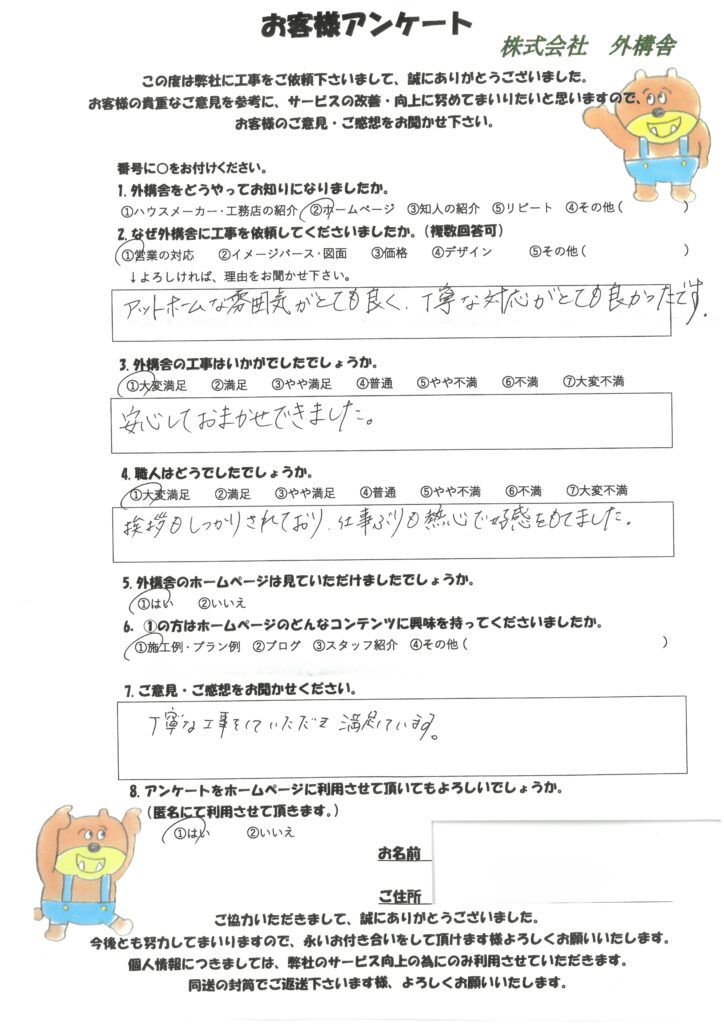 お客様アンケート
株式会社　外構舎
この度は弊社に工事をご依頼下さいまして、誠にありがとうございました。
お客様の貴重なご意見を参考に、サービスの改善・向上に努めてまいりたいと思いますので、
お客様のご意見・ご感想をお聞かせ下さい。
番号に○をお付けください。
1. 外構舎をどうやってお知りになりましたか。
①ハウスメーカー・工務店の紹介　②ホームページ　③知人の紹介　⑤リピート　④その他（　　　　）
2. なぜ外構舎に工事を依頼してくださいましたか。（複数回答可）
①営業の対応　②イメージパース・図面　③価格　④デザイン　⑤その他（　　　　）
↓よろしければ、理由をお聞かせ下さい。
アットホームな雰囲気がとても良く、丁寧な対応がとても良かったです。
3. 外構舎の工事はいかがでしたでしょうか。
①大変満足　②満足　③やや満足　④普通　⑤やや不満　⑥不満　⑦大変不満
安心しておまかせできました。
4. 職人はどうでしたでしょうか。
①大変満足　②満足　③やや満足　④普通　⑤やや不満　⑥不満　⑦大変不満
挨拶もしっかりされており、仕事ぶりも熱心で好感をもてました。
5. 外構舎のホームページは見ていただけましたでしょうか。
①はい　②いいえ
6. ①の方はホームページのどんなコンテンツに興味を持ってくださいましたか。
①施工例・プラン例　②ブログ　③スタッフ紹介　④その他（　　　　）
7. ご意見・ご感想をお聞かせください。
丁寧な工事をしていただき満足しています。
8. アンケートをホームページに利用させて頂いてもよろしいでしょうか。
（匿名にて利用させて頂きます。）
①はい　②いいえ
お名前
ご住所
ご協力いただきまして、誠にありがとうございました。
今後とも努力してまいりますので、永いお付き合いをして頂けます様よろしくお願いいたします。
個人情報につきましては、弊社のサービス向上の為にのみ利用させていただきます。
同送の封筒でご返送下さいます様、よろしくお願いいたします。